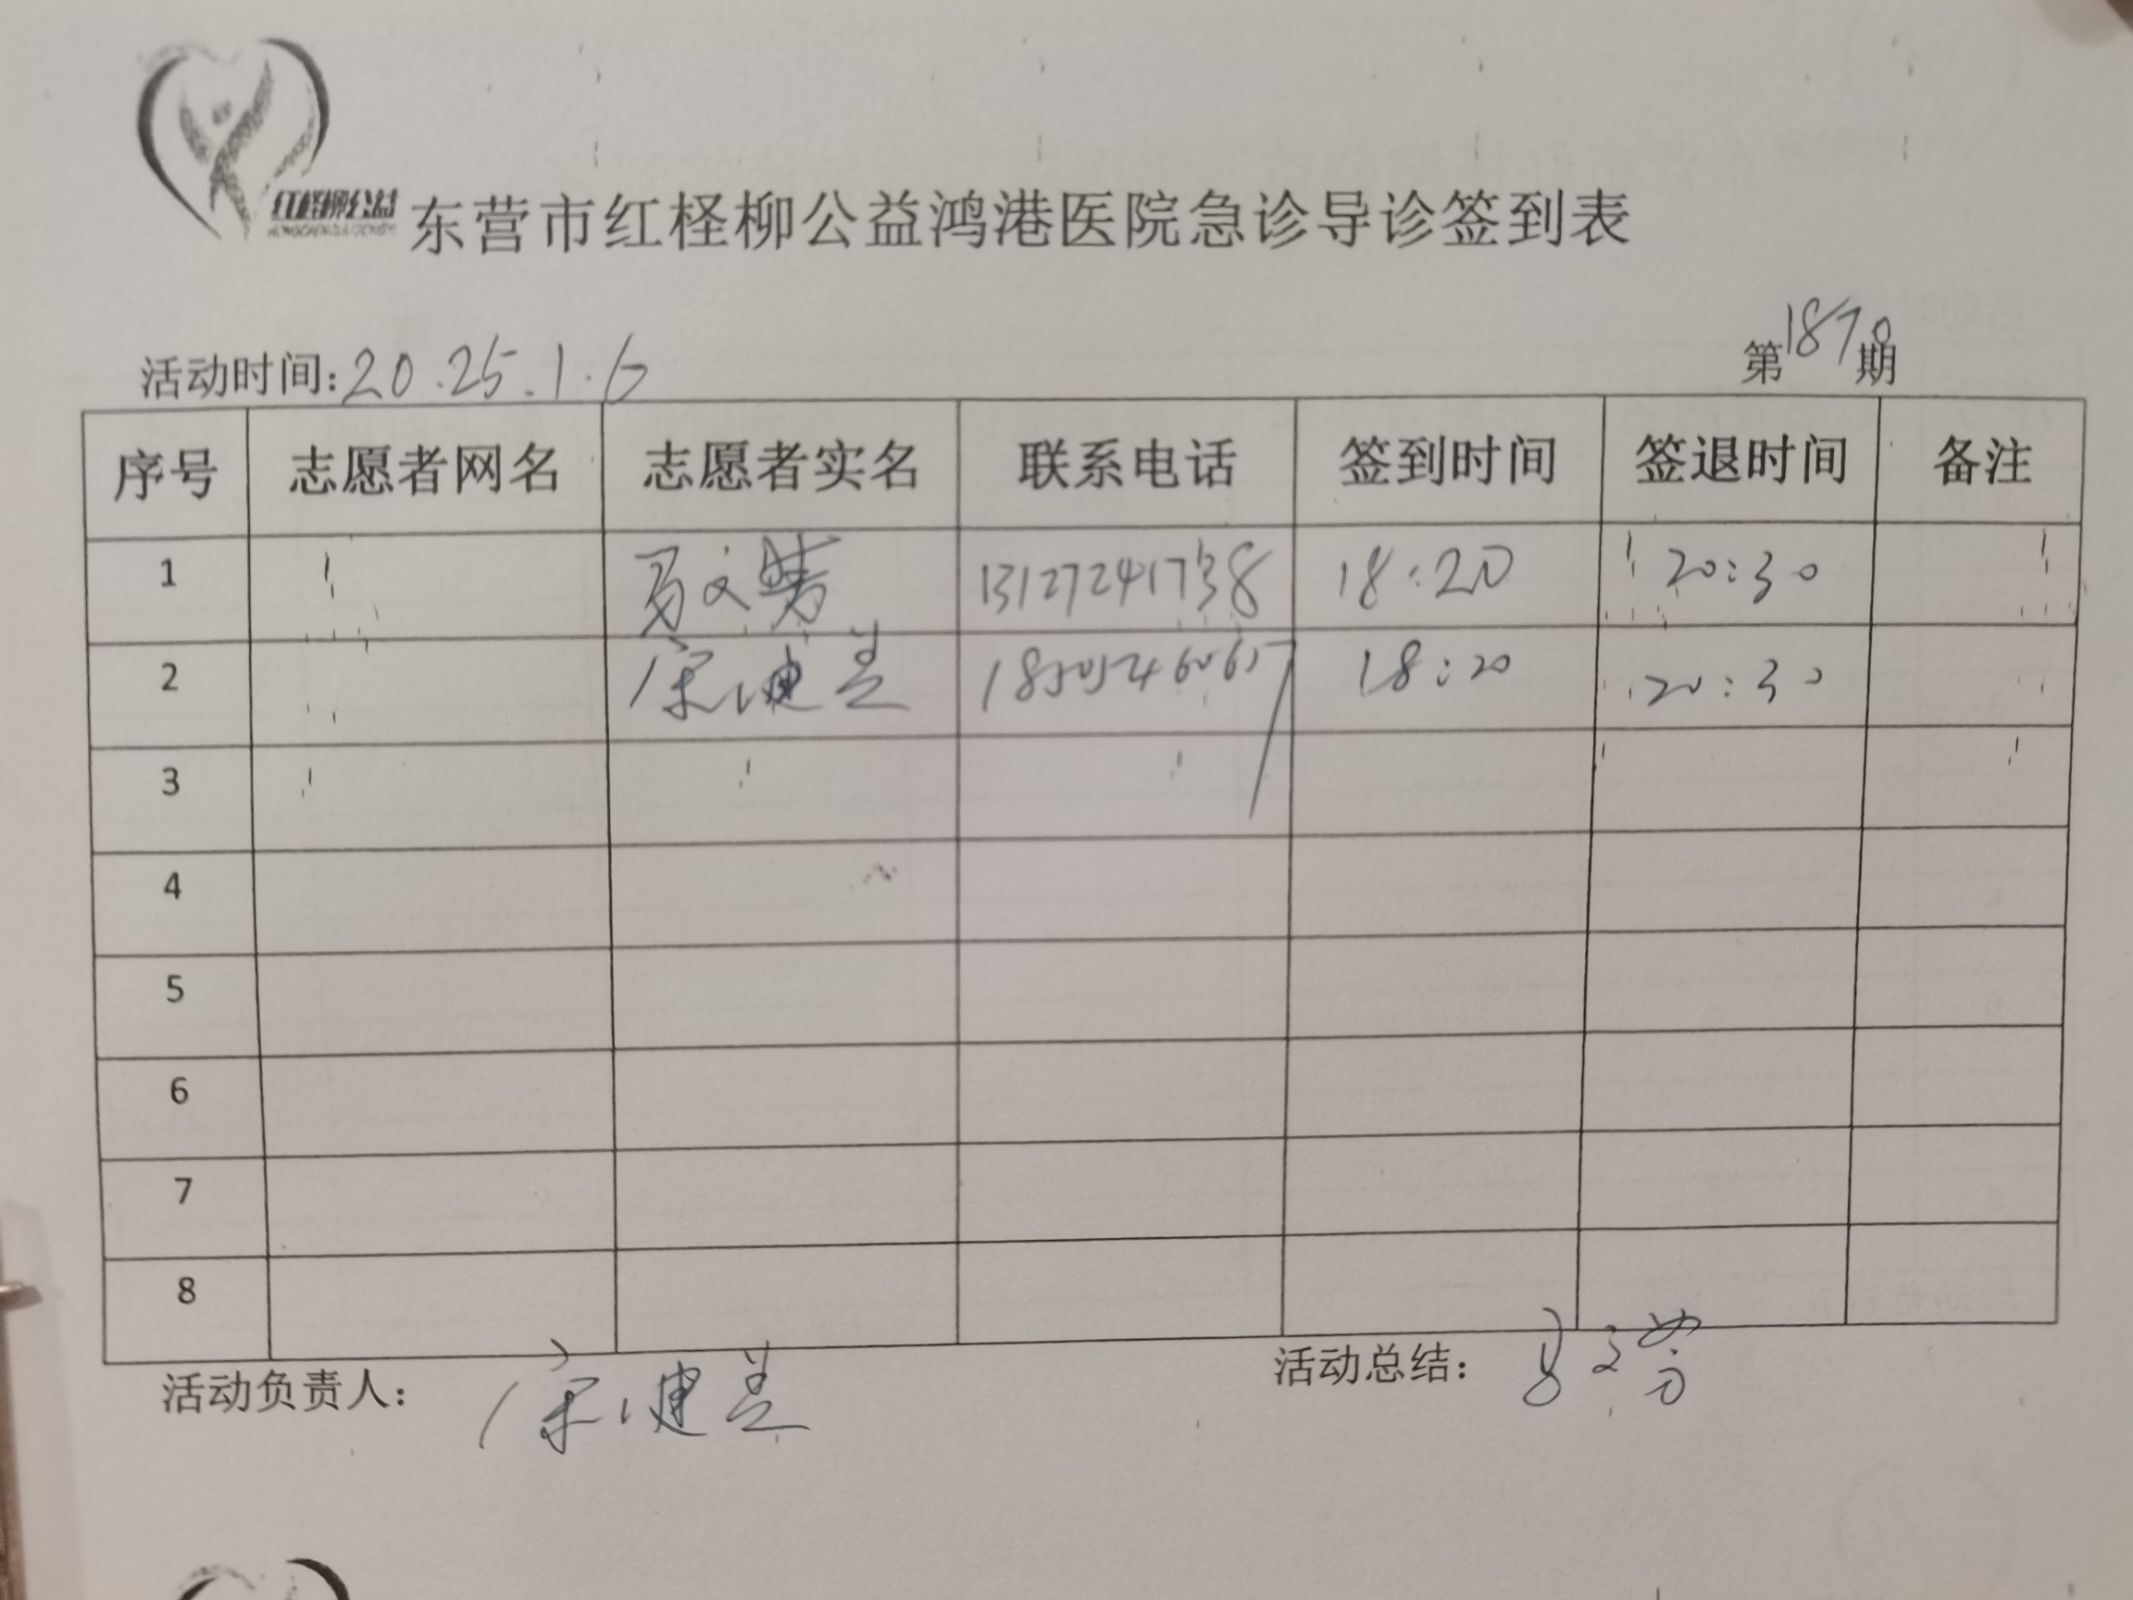 红柽柳公益
东营市红柽柳公益鸿港医院急诊导诊签到表
活动时间:2025.1.6 第1870期
序号 志愿者网名 志愿者实名 联系电话 签到时间 签退时间 备注
1 13127241738 18:20 20:30
2 18:20 20:30
3
4
5
6
7
8
活动负责人: 活动总结: